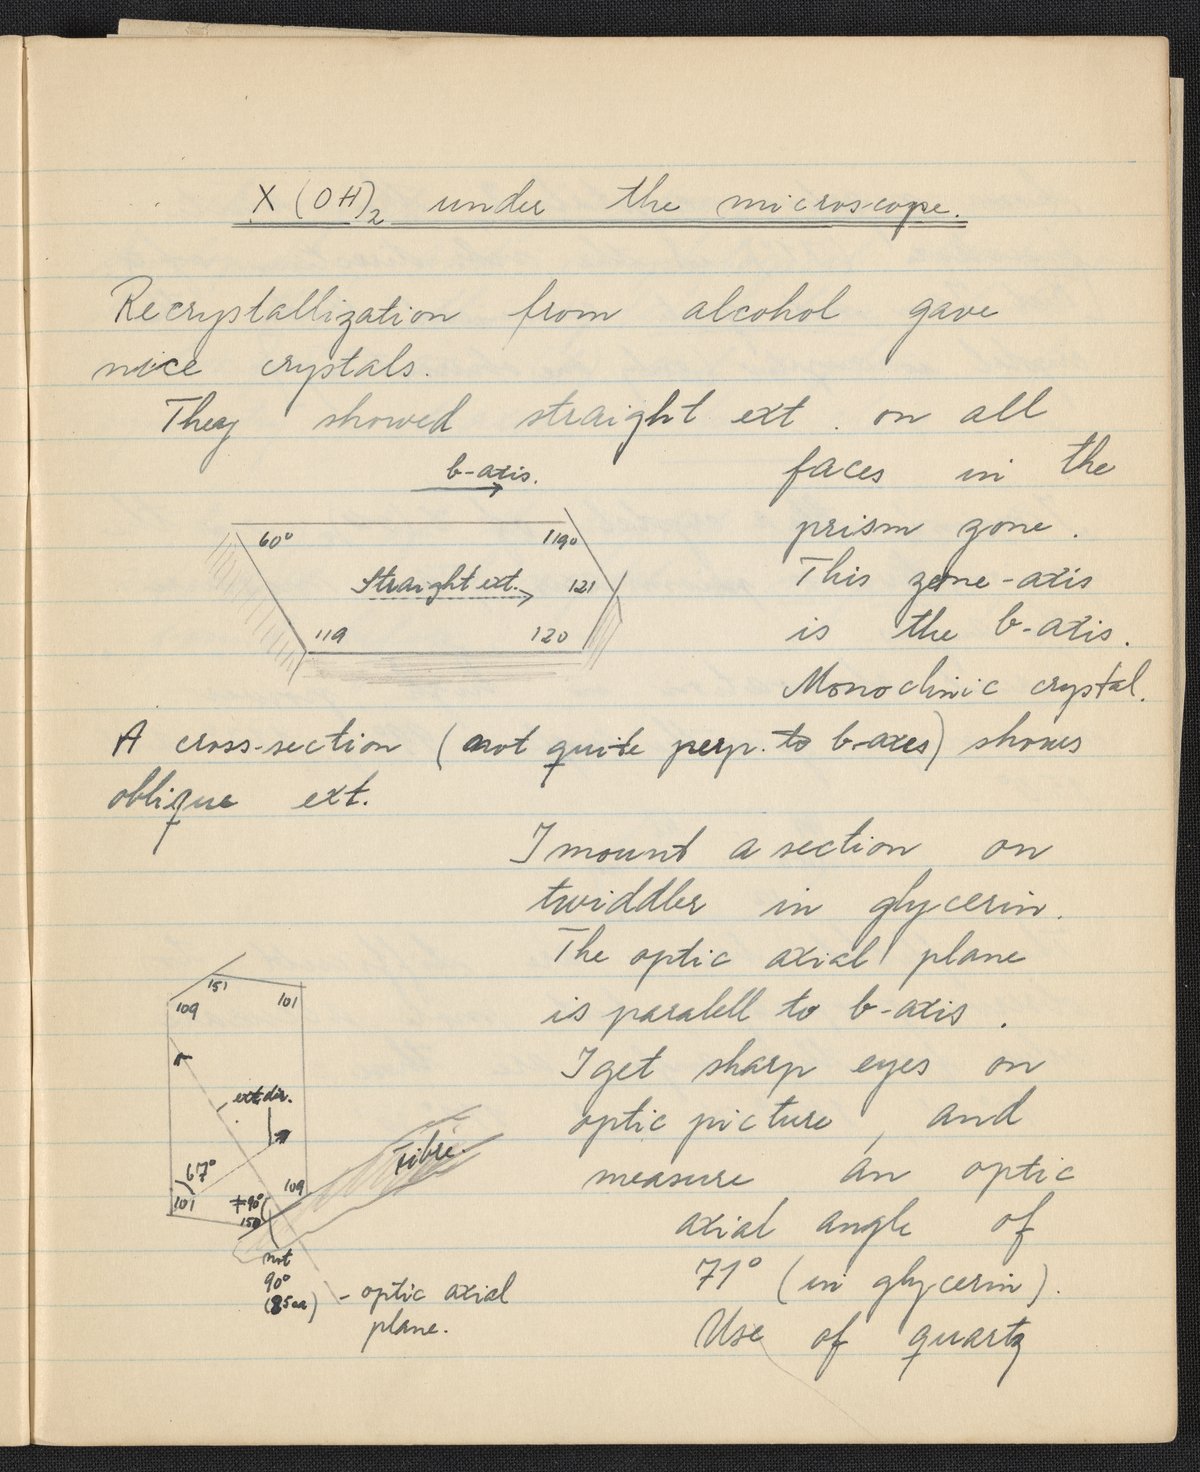 X(OH)2 under the microscope.
Recrystallization from alcohol gave
nice crystals.
They showed straight ext. on all
faces in the
prism zone.
This zone-axis
is the b-axis.
Monoclinic crystal.
b-axis.
60°
119°
Straight ext.
121
119
120
A cross-section (not quite perp. to b-axes) shows
oblique ext.
I mount a section on
twiddler in glycerin.
The optic axial plane
is paralell to b-axis.
I get sharp eyes on
optic picture, and
measure an optic
axial angle of
71° (in glycerin).
Use of quartz
151
109
101
ext. dir.
Fibre.
67°
101
109
≠90°
150
not
90°
- optic axial
plane.